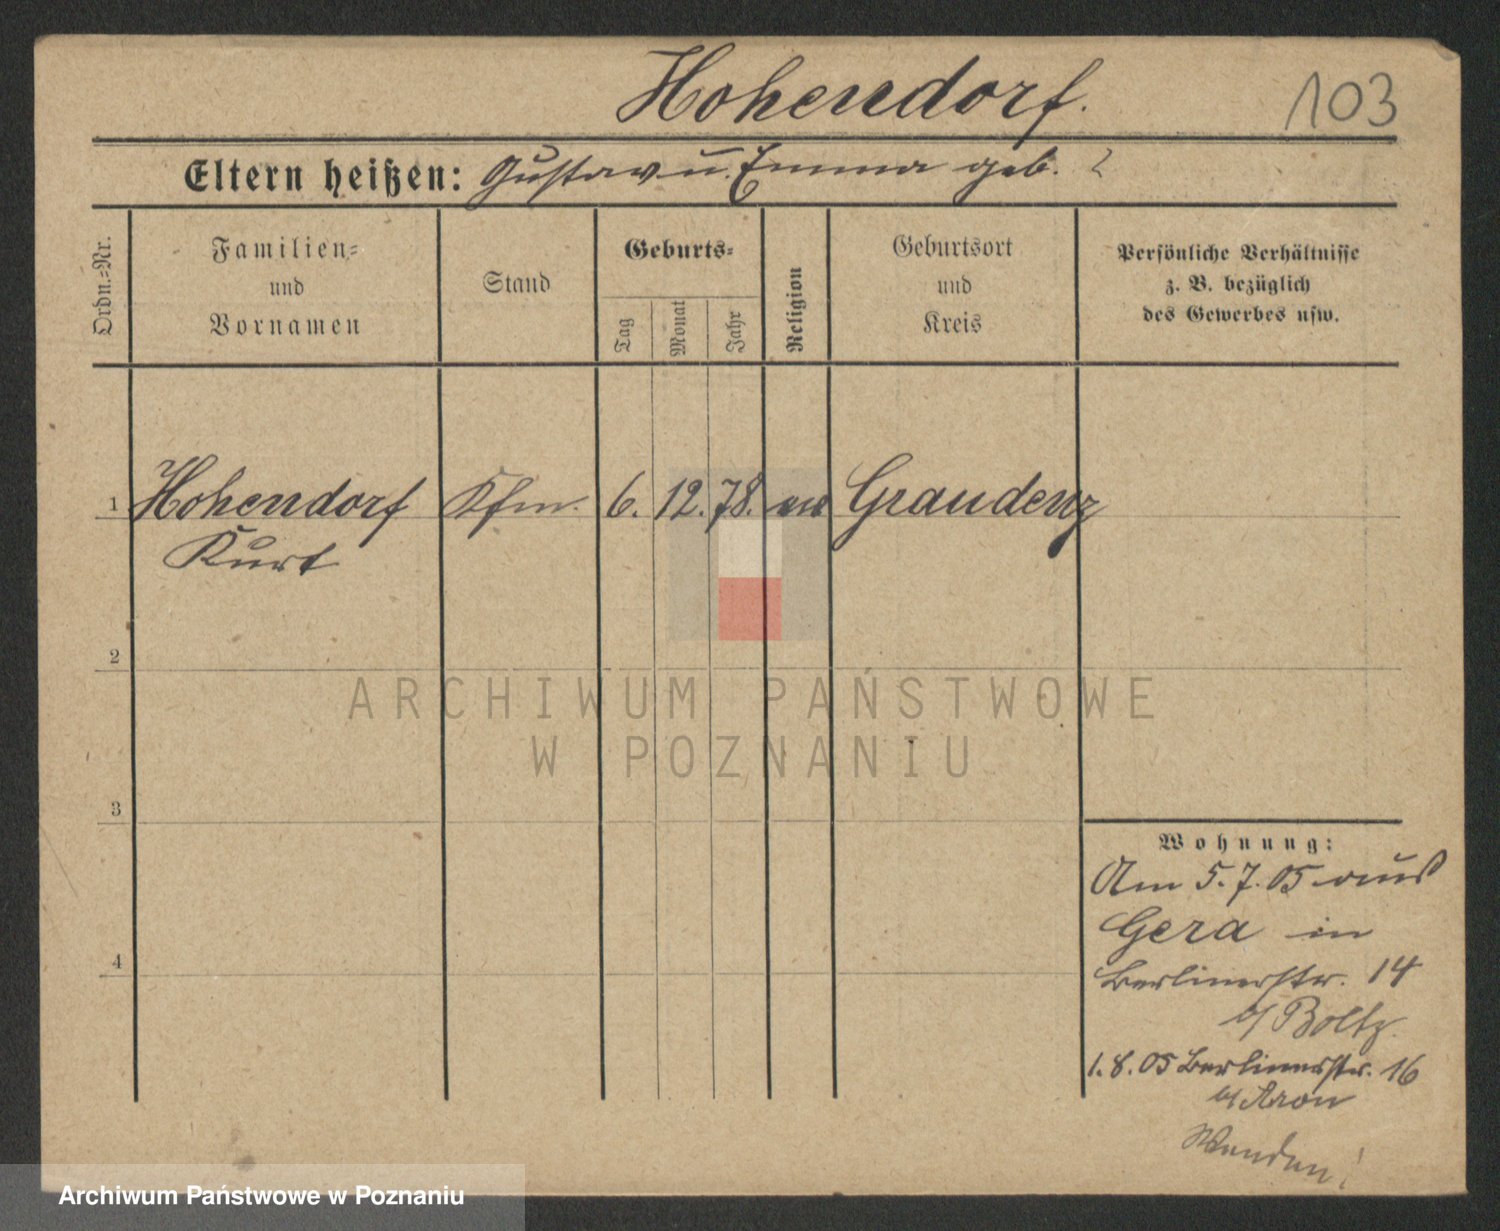 Hohendorf.
103
Eltern heißen: Gustav u. Emma geb. ?
Ordn.=Nr.
Familien=
und
Vornamen
Stand
Geburts=
Tag
Monat
Jahr
Religion
Geburtsort
und
Kreis
Persönliche Verhältnisse
z. B. bezüglich
des Gewerbes usw.
1 Hohendorf Kfm. 6. 12. 78. ev Graudenz
Kurt
2
3
4
Wohnung:
Am 5. 7. 05 aus
Gera in
Berlinerstr. 14
b/ Boltz.
1. 8. 05 Berlinerstr. 16
b/ Aron
Wenden!
ARCHIWUM PAŃSTWOWE
W POZNANIU
Archiwum Państwowe w Poznaniu